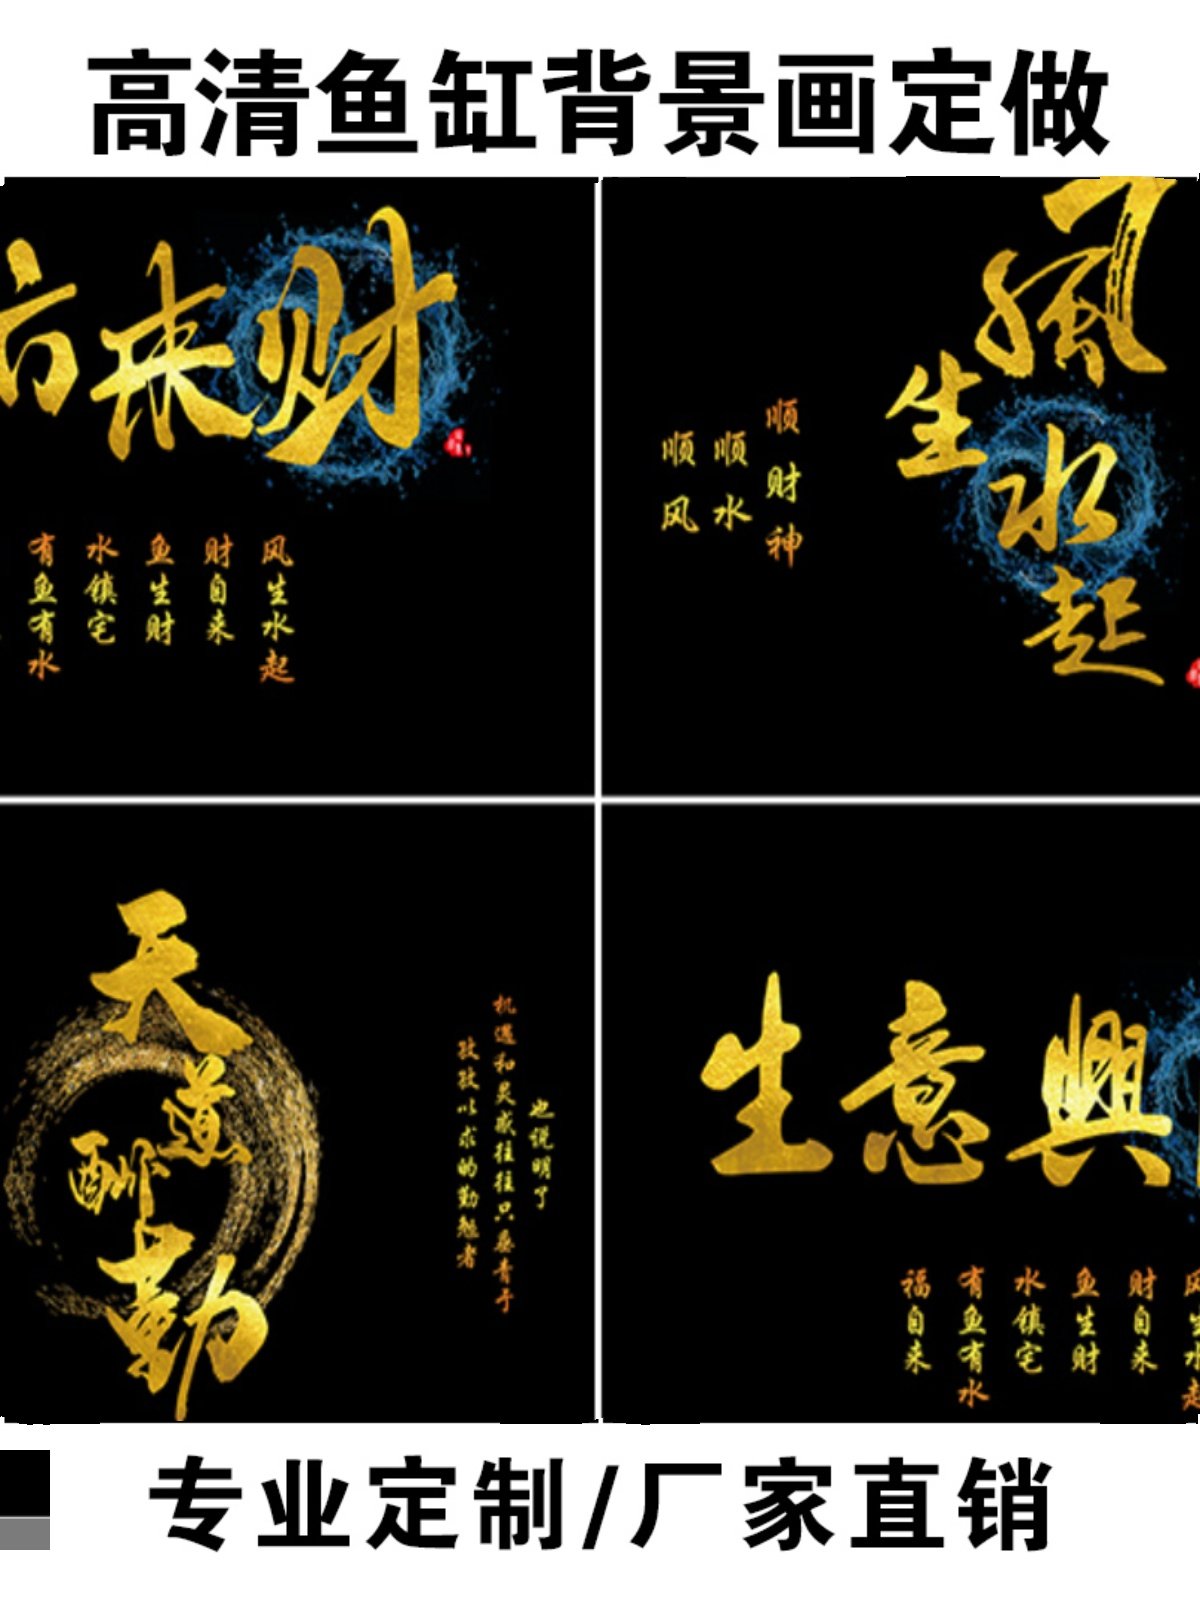 高清鱼缸背景画定做
方来财
风生水起
财自来
鱼生财
水镇宅
有鱼有水
風生水起
顺财神
顺水
顺风
天道酬勤
也说明了
机遇和灵感往往只垂青于
孜孜以求的勤勉者
生意興
风生水起
财自来
鱼生财
水镇宅
有鱼有水
福自来
专业定制/厂家直销